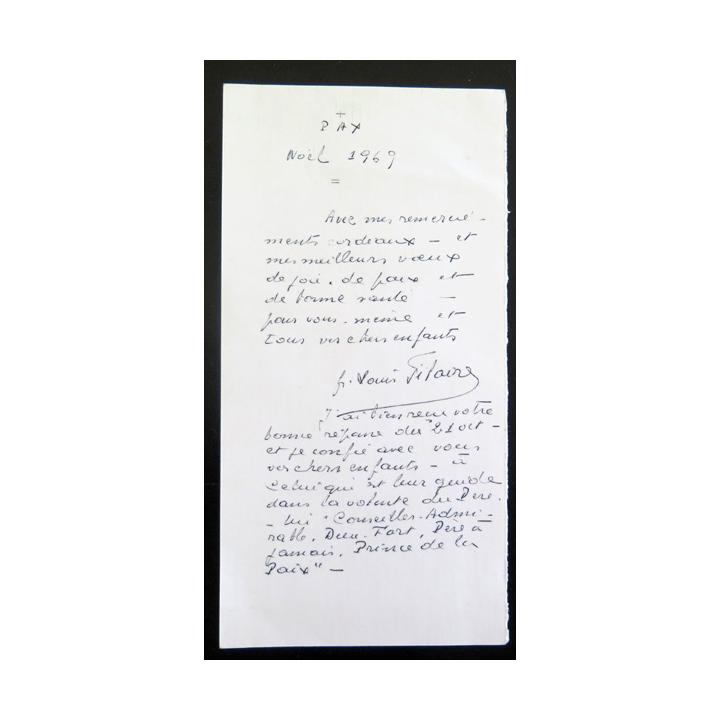 +
PAX
Noël 1969
=
Avec mes remercie-
ments cordiaux - et
mes meilleurs vœux
de joie, de paix et
de bonne santé -
pour vous-même et
tous vos chers enfants
fr. Louis
J'ai bien reçu votre
bonne réponse du 21 oct -
et je confie avec vous
vos chers enfants - à
celui qui est leur guide
dans la volonté du Père.
- Lui "Conseiller-Admi-
rable, Dieu-Fort, Père à
jamais, Prince de la
Paix" -